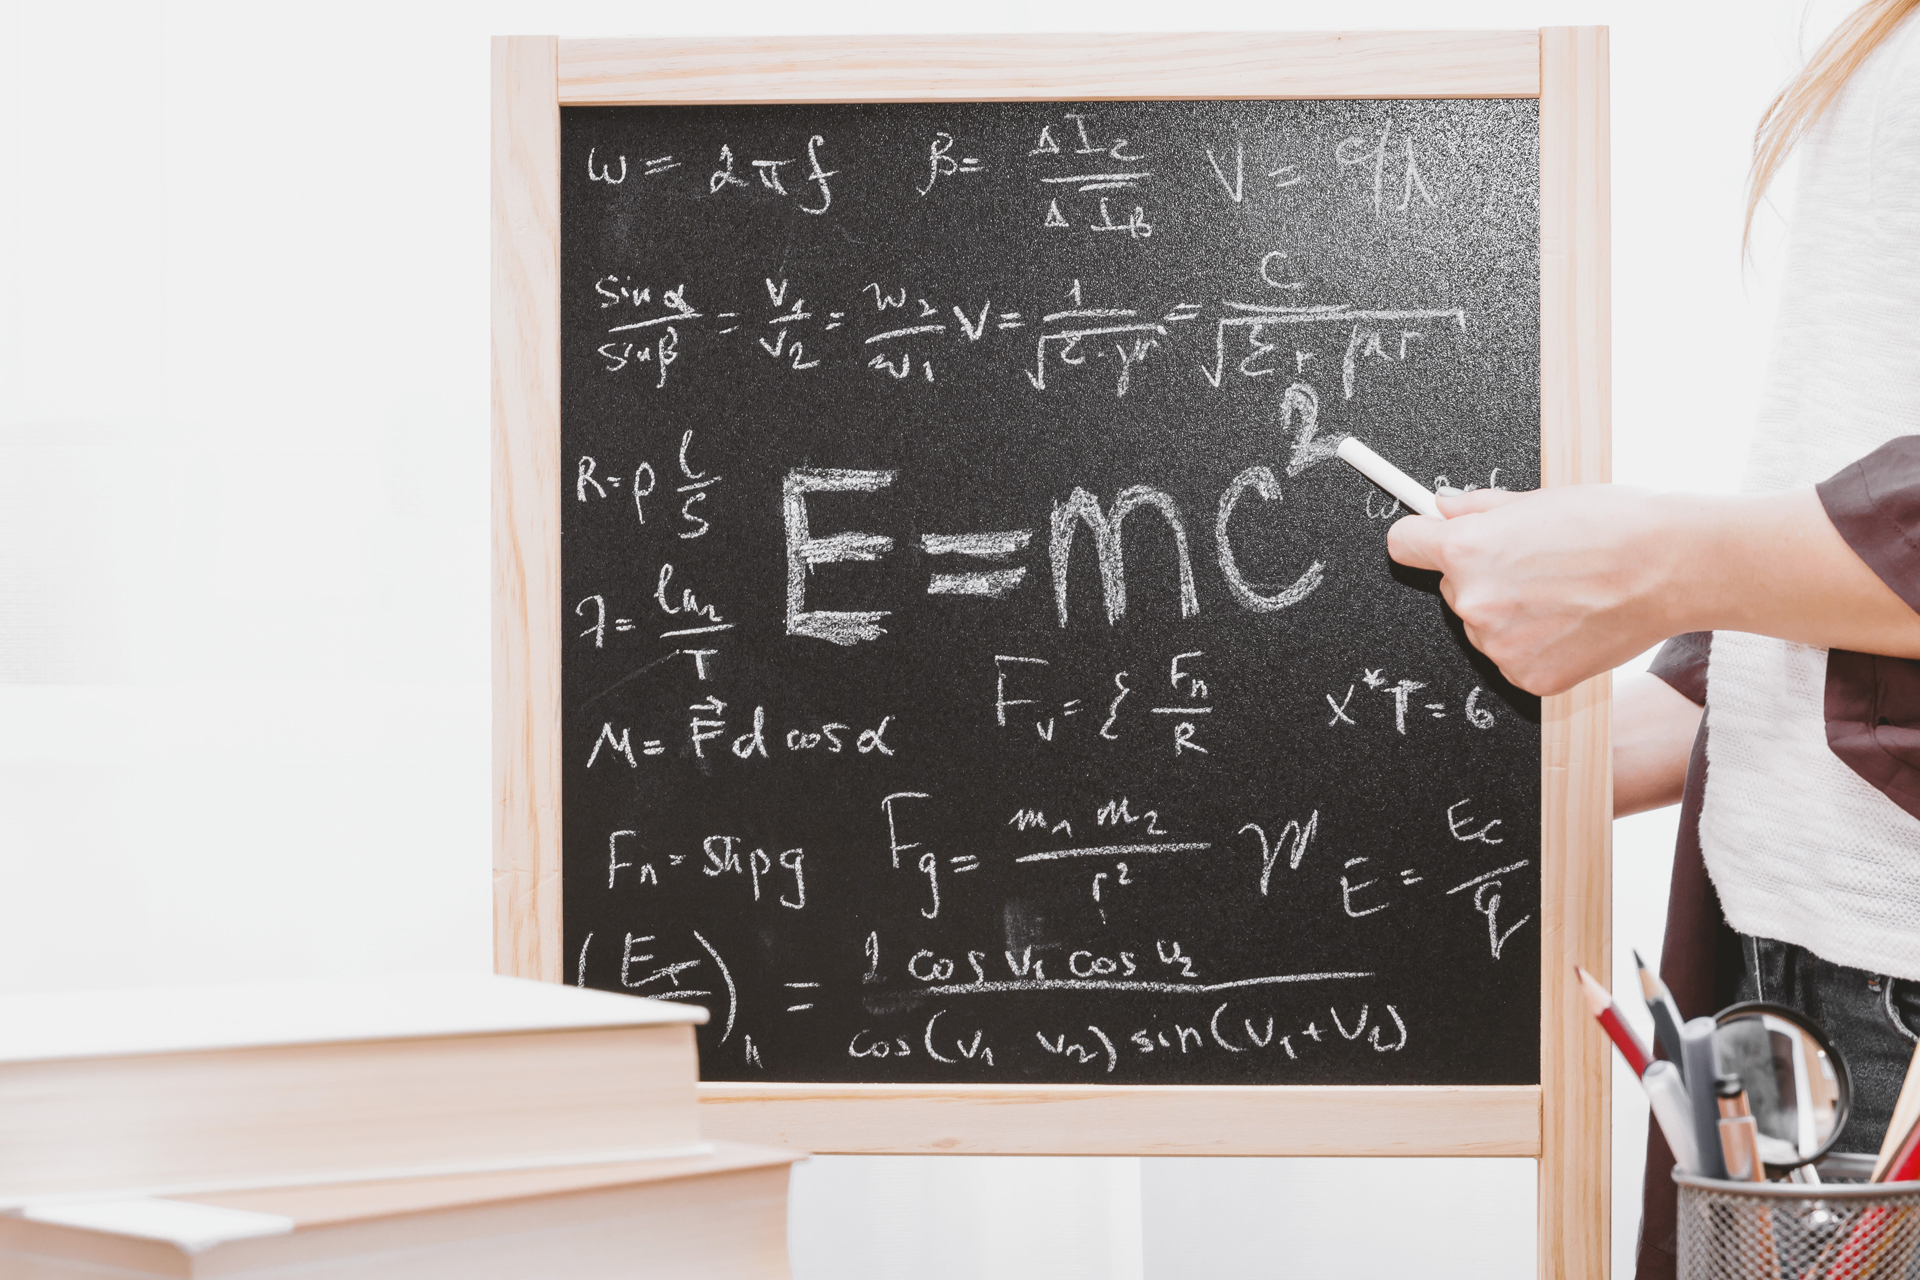 ω = 2πf β = ΔI_C / ΔI_B V = c/λ
sin α / sin β = v₁ / v₂ = w₂ / w₁ V = 1 / √(Σ·μ) = C / √(Σr μr)
R = ρ l/S
E = mc²
λ = ln₂ / T
F_v = { F_n / R x*T = 6
M = F⃗ d cos α
F_n = Shpg F_g = m₁ m₂ / r² E = E_c / q
(E_T / )_n = 2 cos v₁ cos v₂ / cos(v₁ v₂) sin(v₁ + v₂)